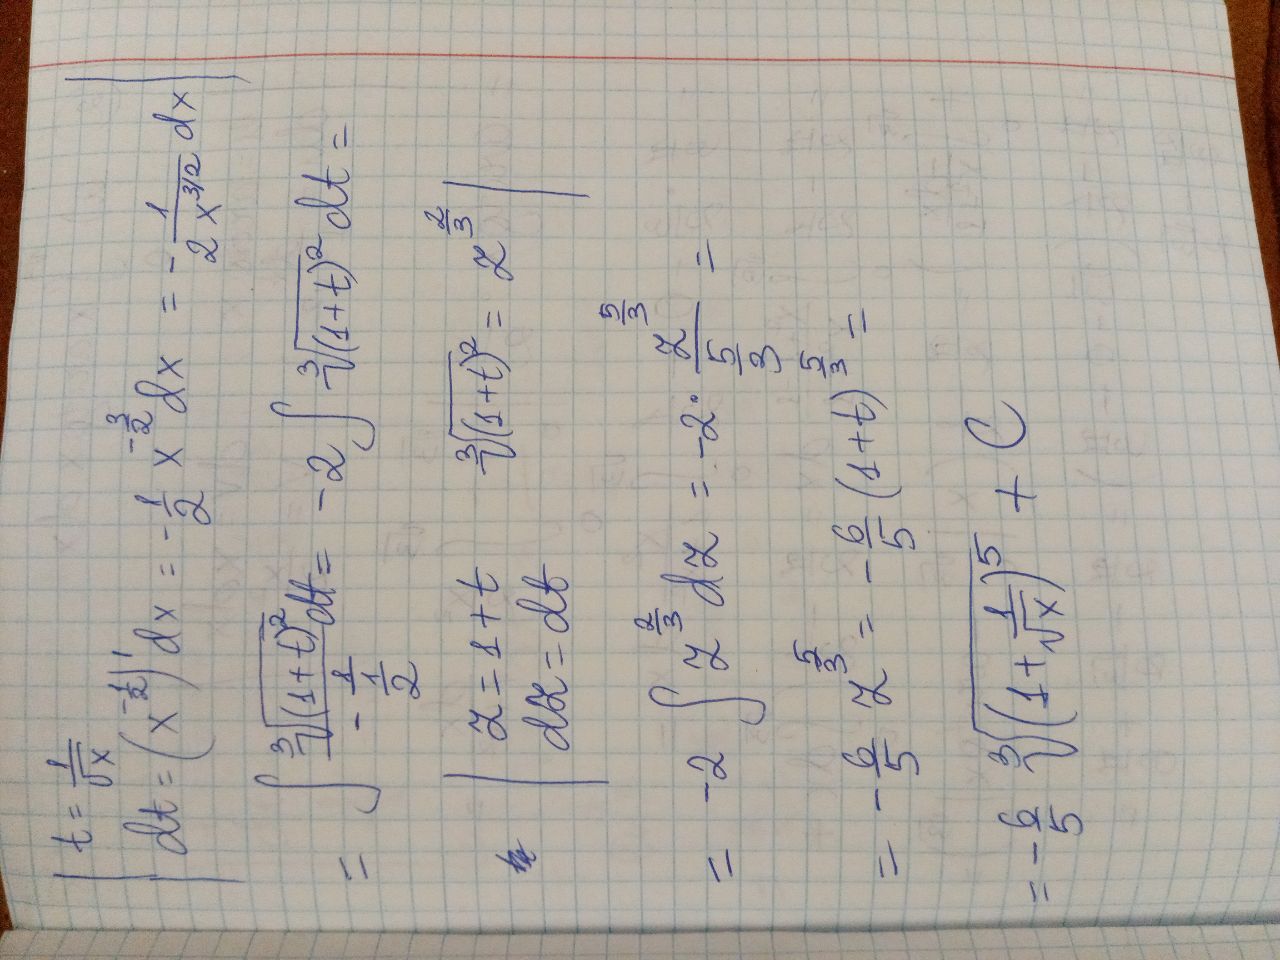 t = 1/√x
dt = (x^(-1/2))' dx = -1/2 x^(-3/2) dx = - 1/(2 x^(3/2)) dx
= ∫ ∛(1+t)² / (- 1/(1/2)) dt = -2 ∫ ∛(1+t)² dt =
z = 1+t ∛(1+t)² = z^(2/3)
dz = dt
= -2 ∫ z^(2/3) dz = -2 · z^(5/3) / (5/3) =
= - 6/5 z^(5/3) = - 6/5 (1+t)^(5/3) =
= - 6/5 ∛(1 + 1/√x)^5 + C